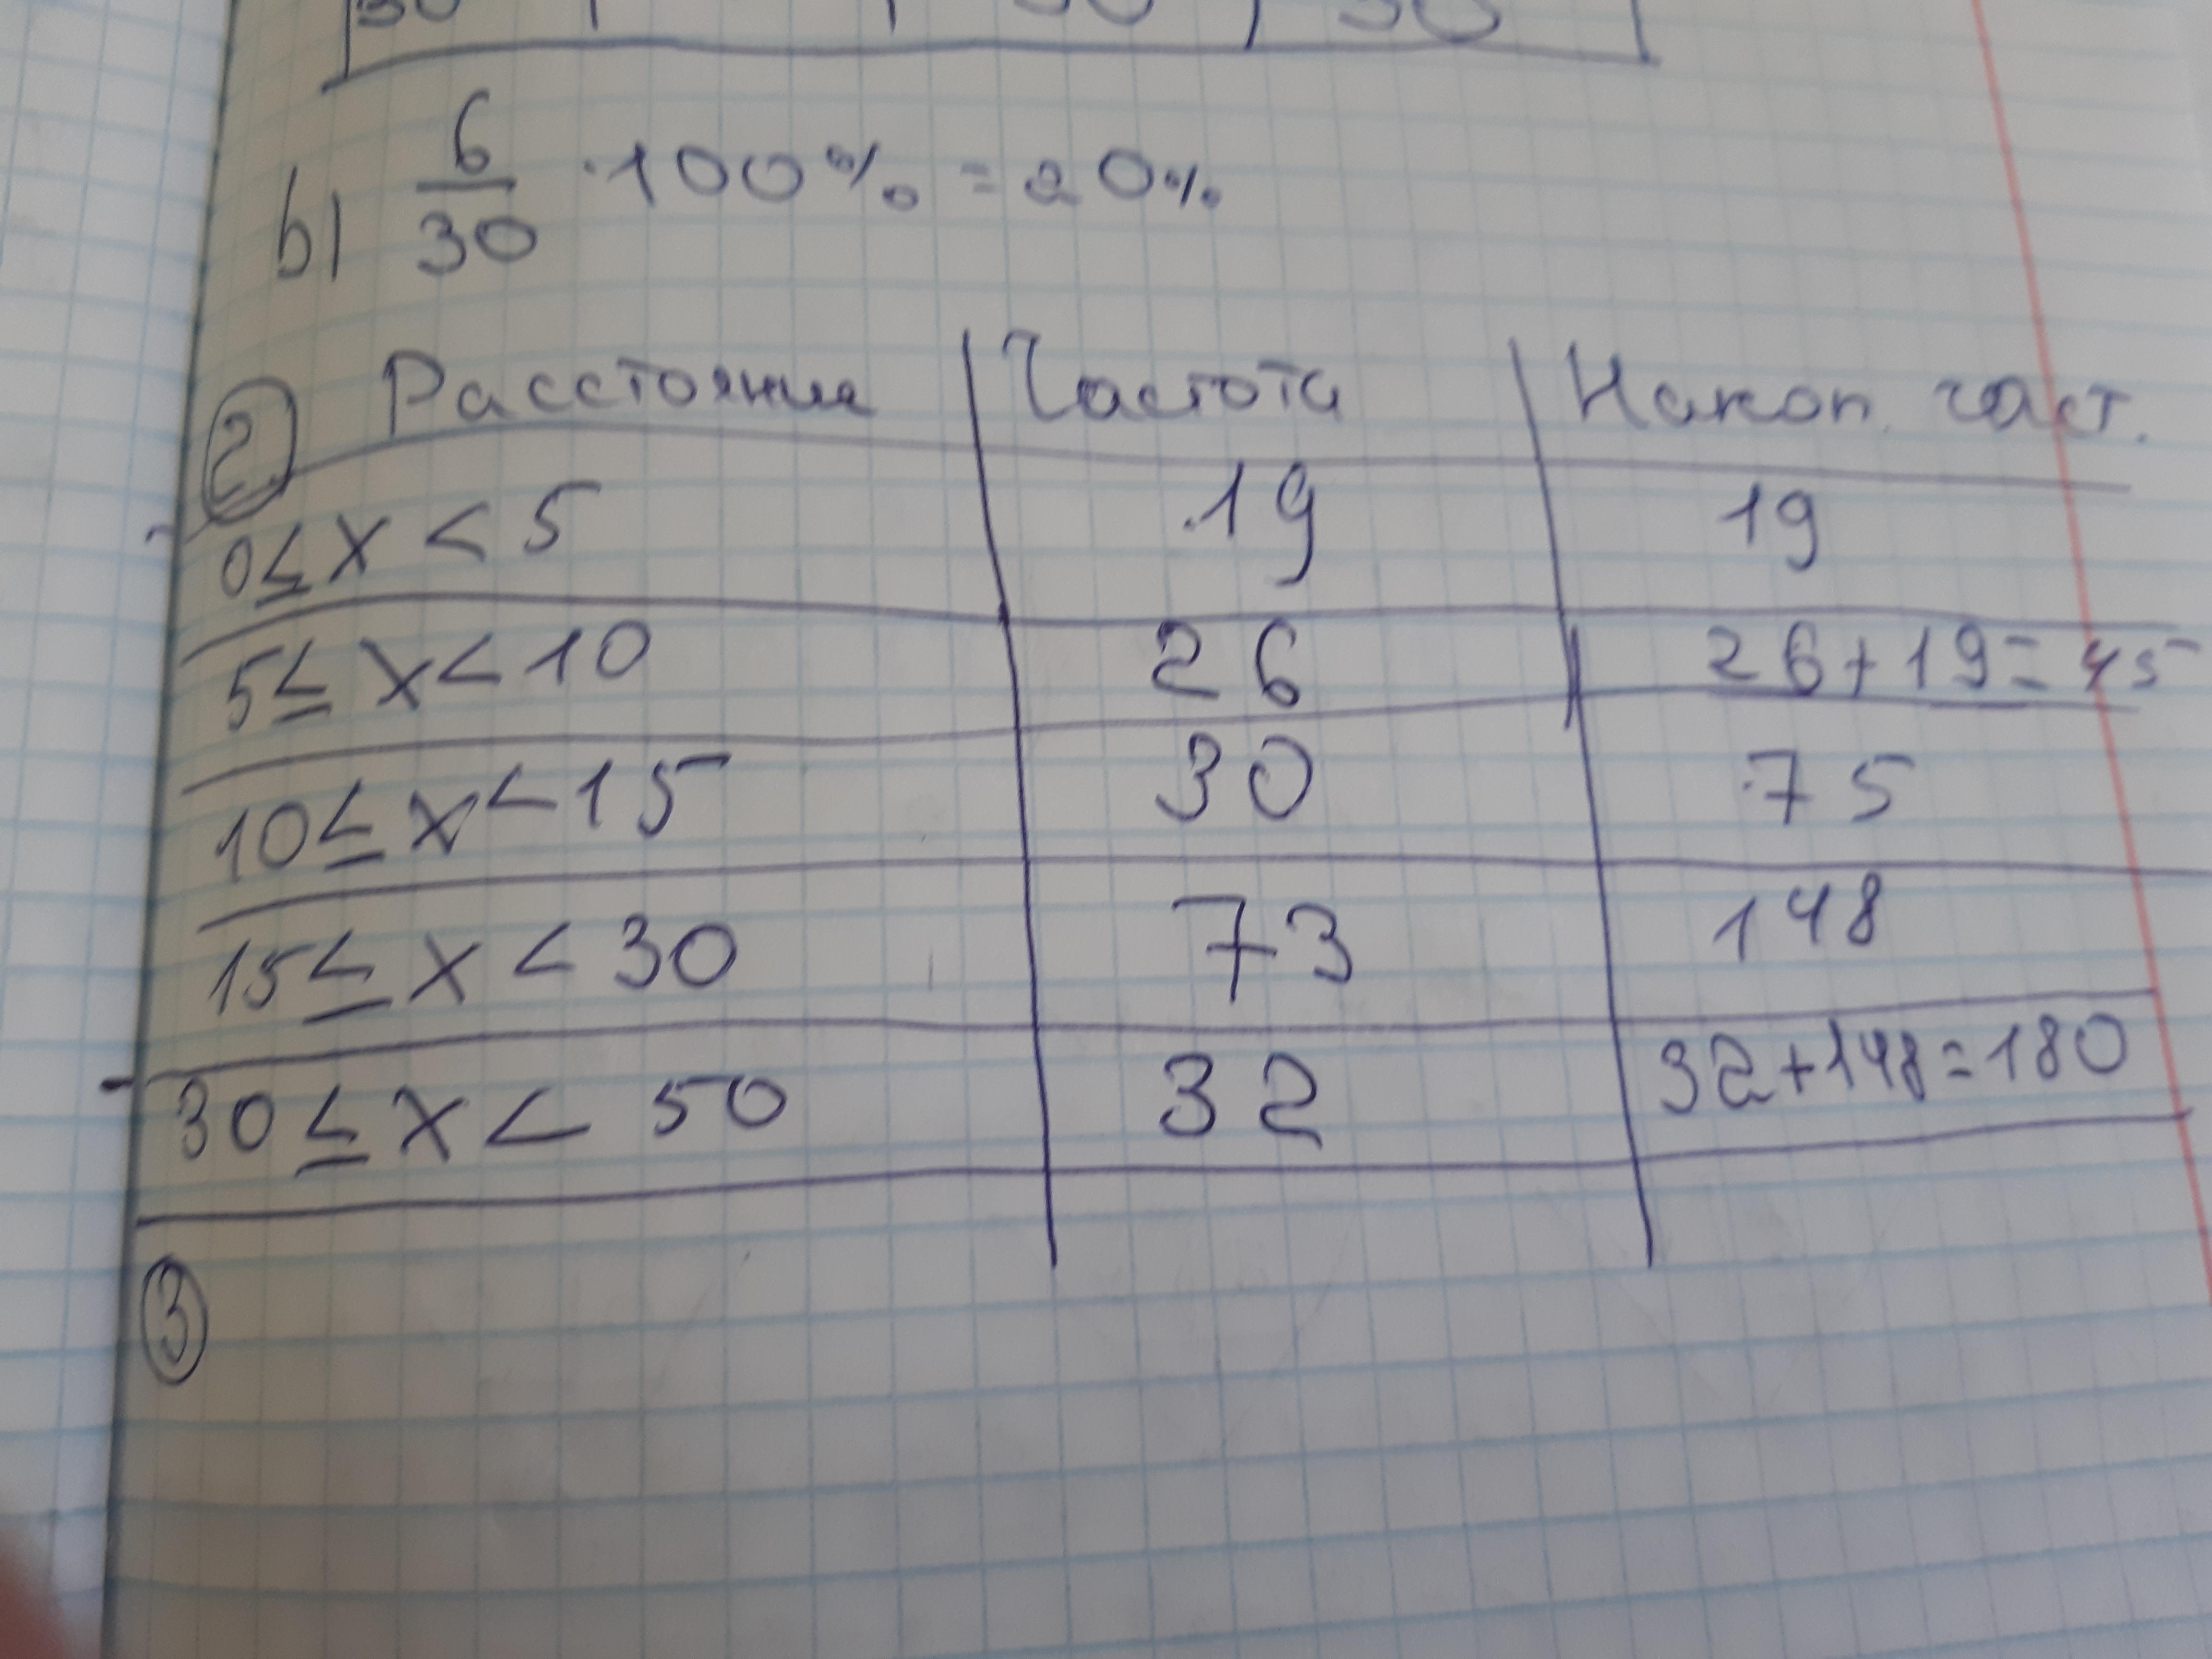 30 30 30
b) 6/30 · 100% = 20%
② Расстояние Частота Накоп. част.
0 ≤ x < 5 19 19
5 ≤ x < 10 26 26+19=45
10 ≤ x < 15 30 75
15 ≤ x < 30 73 148
30 ≤ x < 50 32 32+148=180
③